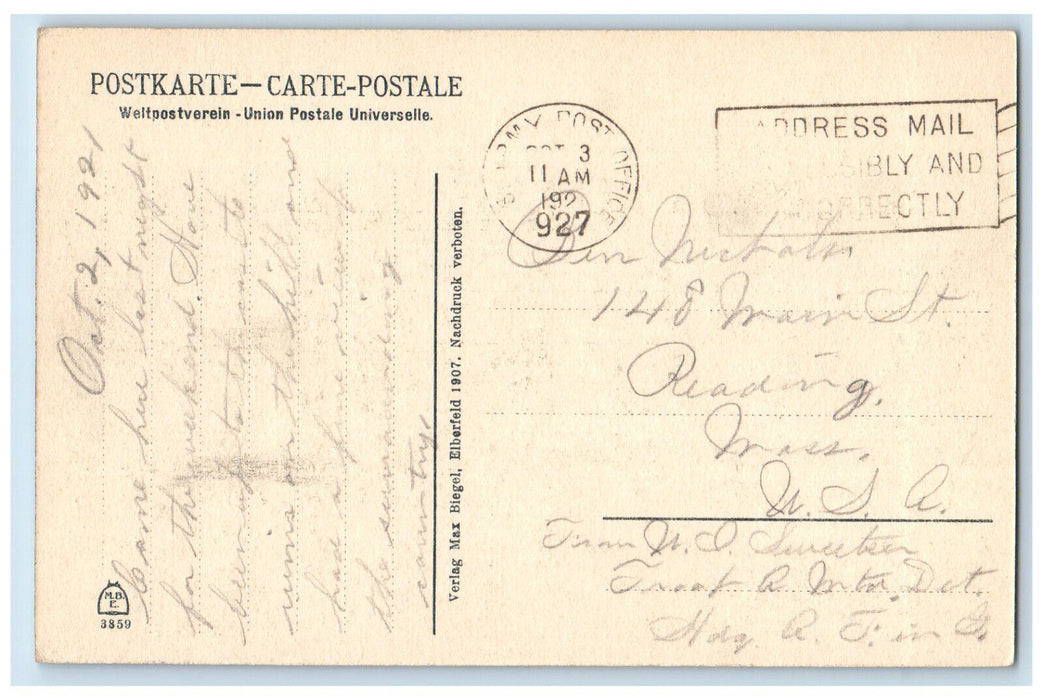 POSTKARTE—CARTE-POSTALE
Weltpostverein - Union Postale Universelle.
Oct. 2, 1921
Came here last night
for the weekend. Have
been up to the castle
ruins on the hill and
had a fine view of
the surrounding
country.
M.B.
E.
3859
Verlag Max Biegel, Elberfeld 1907. Nachdruck verboten.
ARMY POST OFFICE
3
11 AM
192
927
ADDRESS MAIL
IBLY AND
CORRECTLY
Nichols
148 Main St.
Reading,
Mass.
U. S. A.
From Sweetser
Troop A Mtd. Det.
Hdq. A. F. in G.